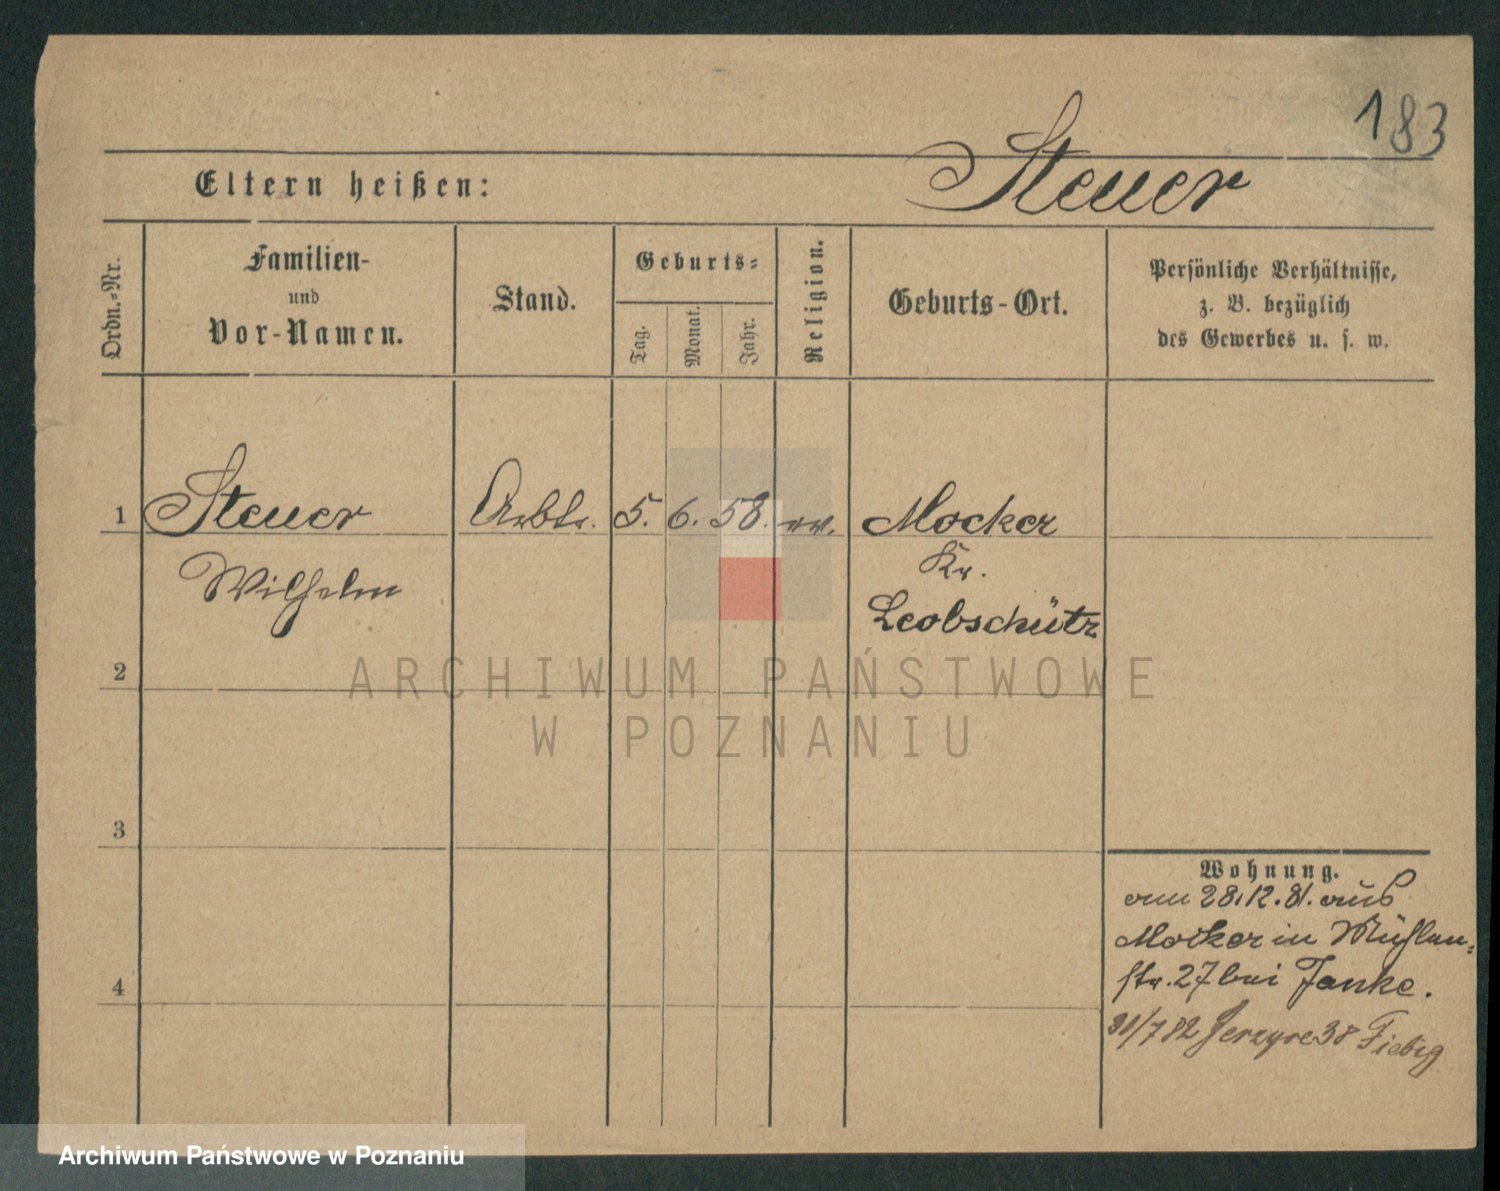 183
Eltern heißen: Steuer
Ordn.-Nr.
Familien-
und
Vor-Namen.
Stand.
Geburts-
Tag.
Monat.
Jahr.
Religion.
Geburts-Ort.
Persönliche Verhältnisse,
z. B. bezüglich
des Gewerbes u. s. w.
1 Steuer Arbtr. 5. 6. 58. ev. Mocker
Wilhelm Kr.
Leobschütz
2
ARCHIWUM PAŃSTWOWE
W POZNANIU
3
Wohnung.
am 28.12.81. aus
Mocker in Mühlen-
str. 27 bei Janke.
4
31/7 82 38 Fiebig
Archiwum Państwowe w Poznaniu